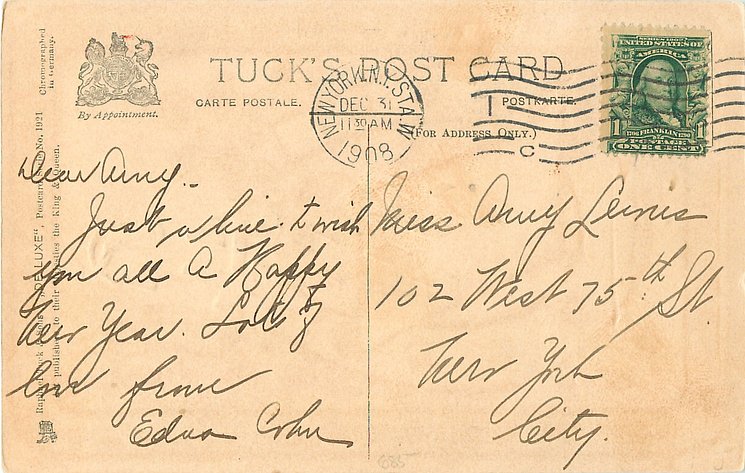 TUCK'S POST CARD
CARTE POSTALE.
POSTKARTE.
(FOR ADDRESS ONLY.)
By Appointment.
Chromographed
in Germany.
"DE LUXE", Postcard No. 1921
the King & Queen.
NEW YORK, N.Y. STA. W
DEC 31
11 30 AM
1908
C
SERIES 1902
UNITED STATES OF
1706 FRANKLIN 1790
1 1
POSTAGE
ONE CENT
Dear Amy.
Just a line to wish
you all a Happy
New Year. Lots of
love from
Edna Cohn
Miss Amy
102 West 75th St.
New York
City.
685